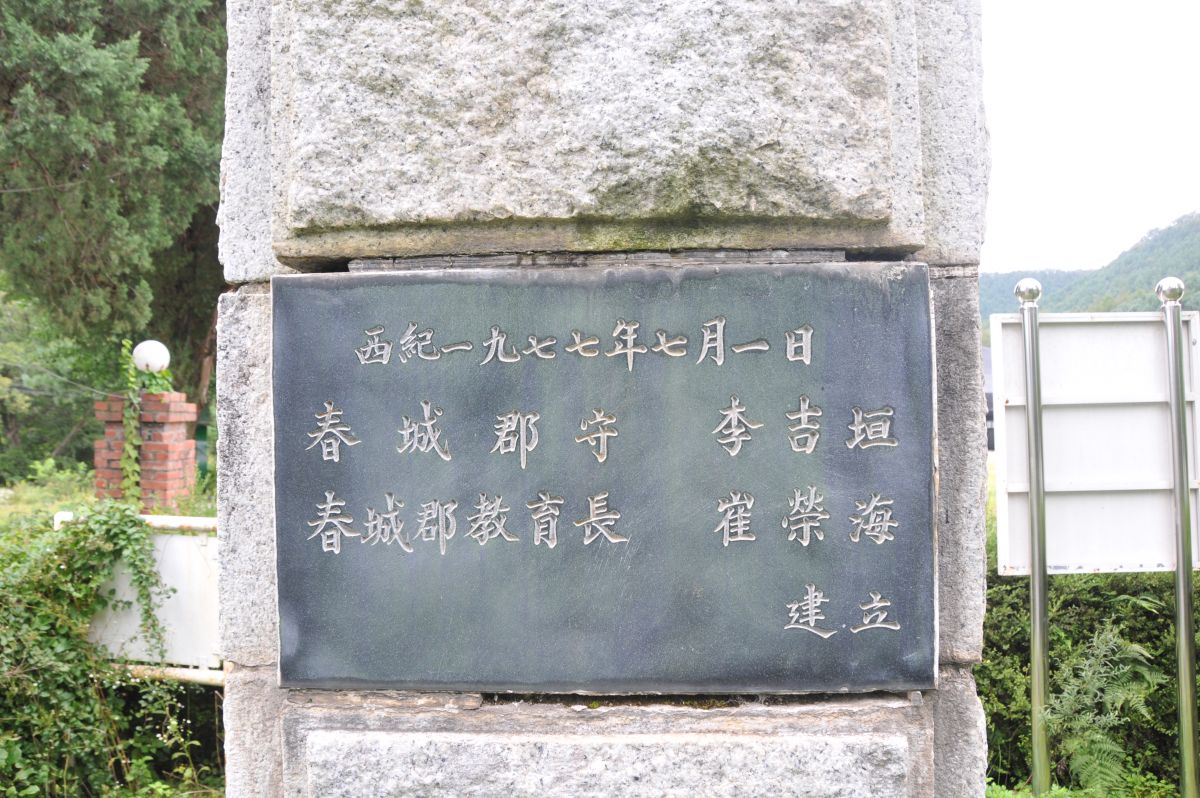 西紀一九七七年七月一日
春城郡守 李吉垣
春城郡教育長 崔榮海
建立